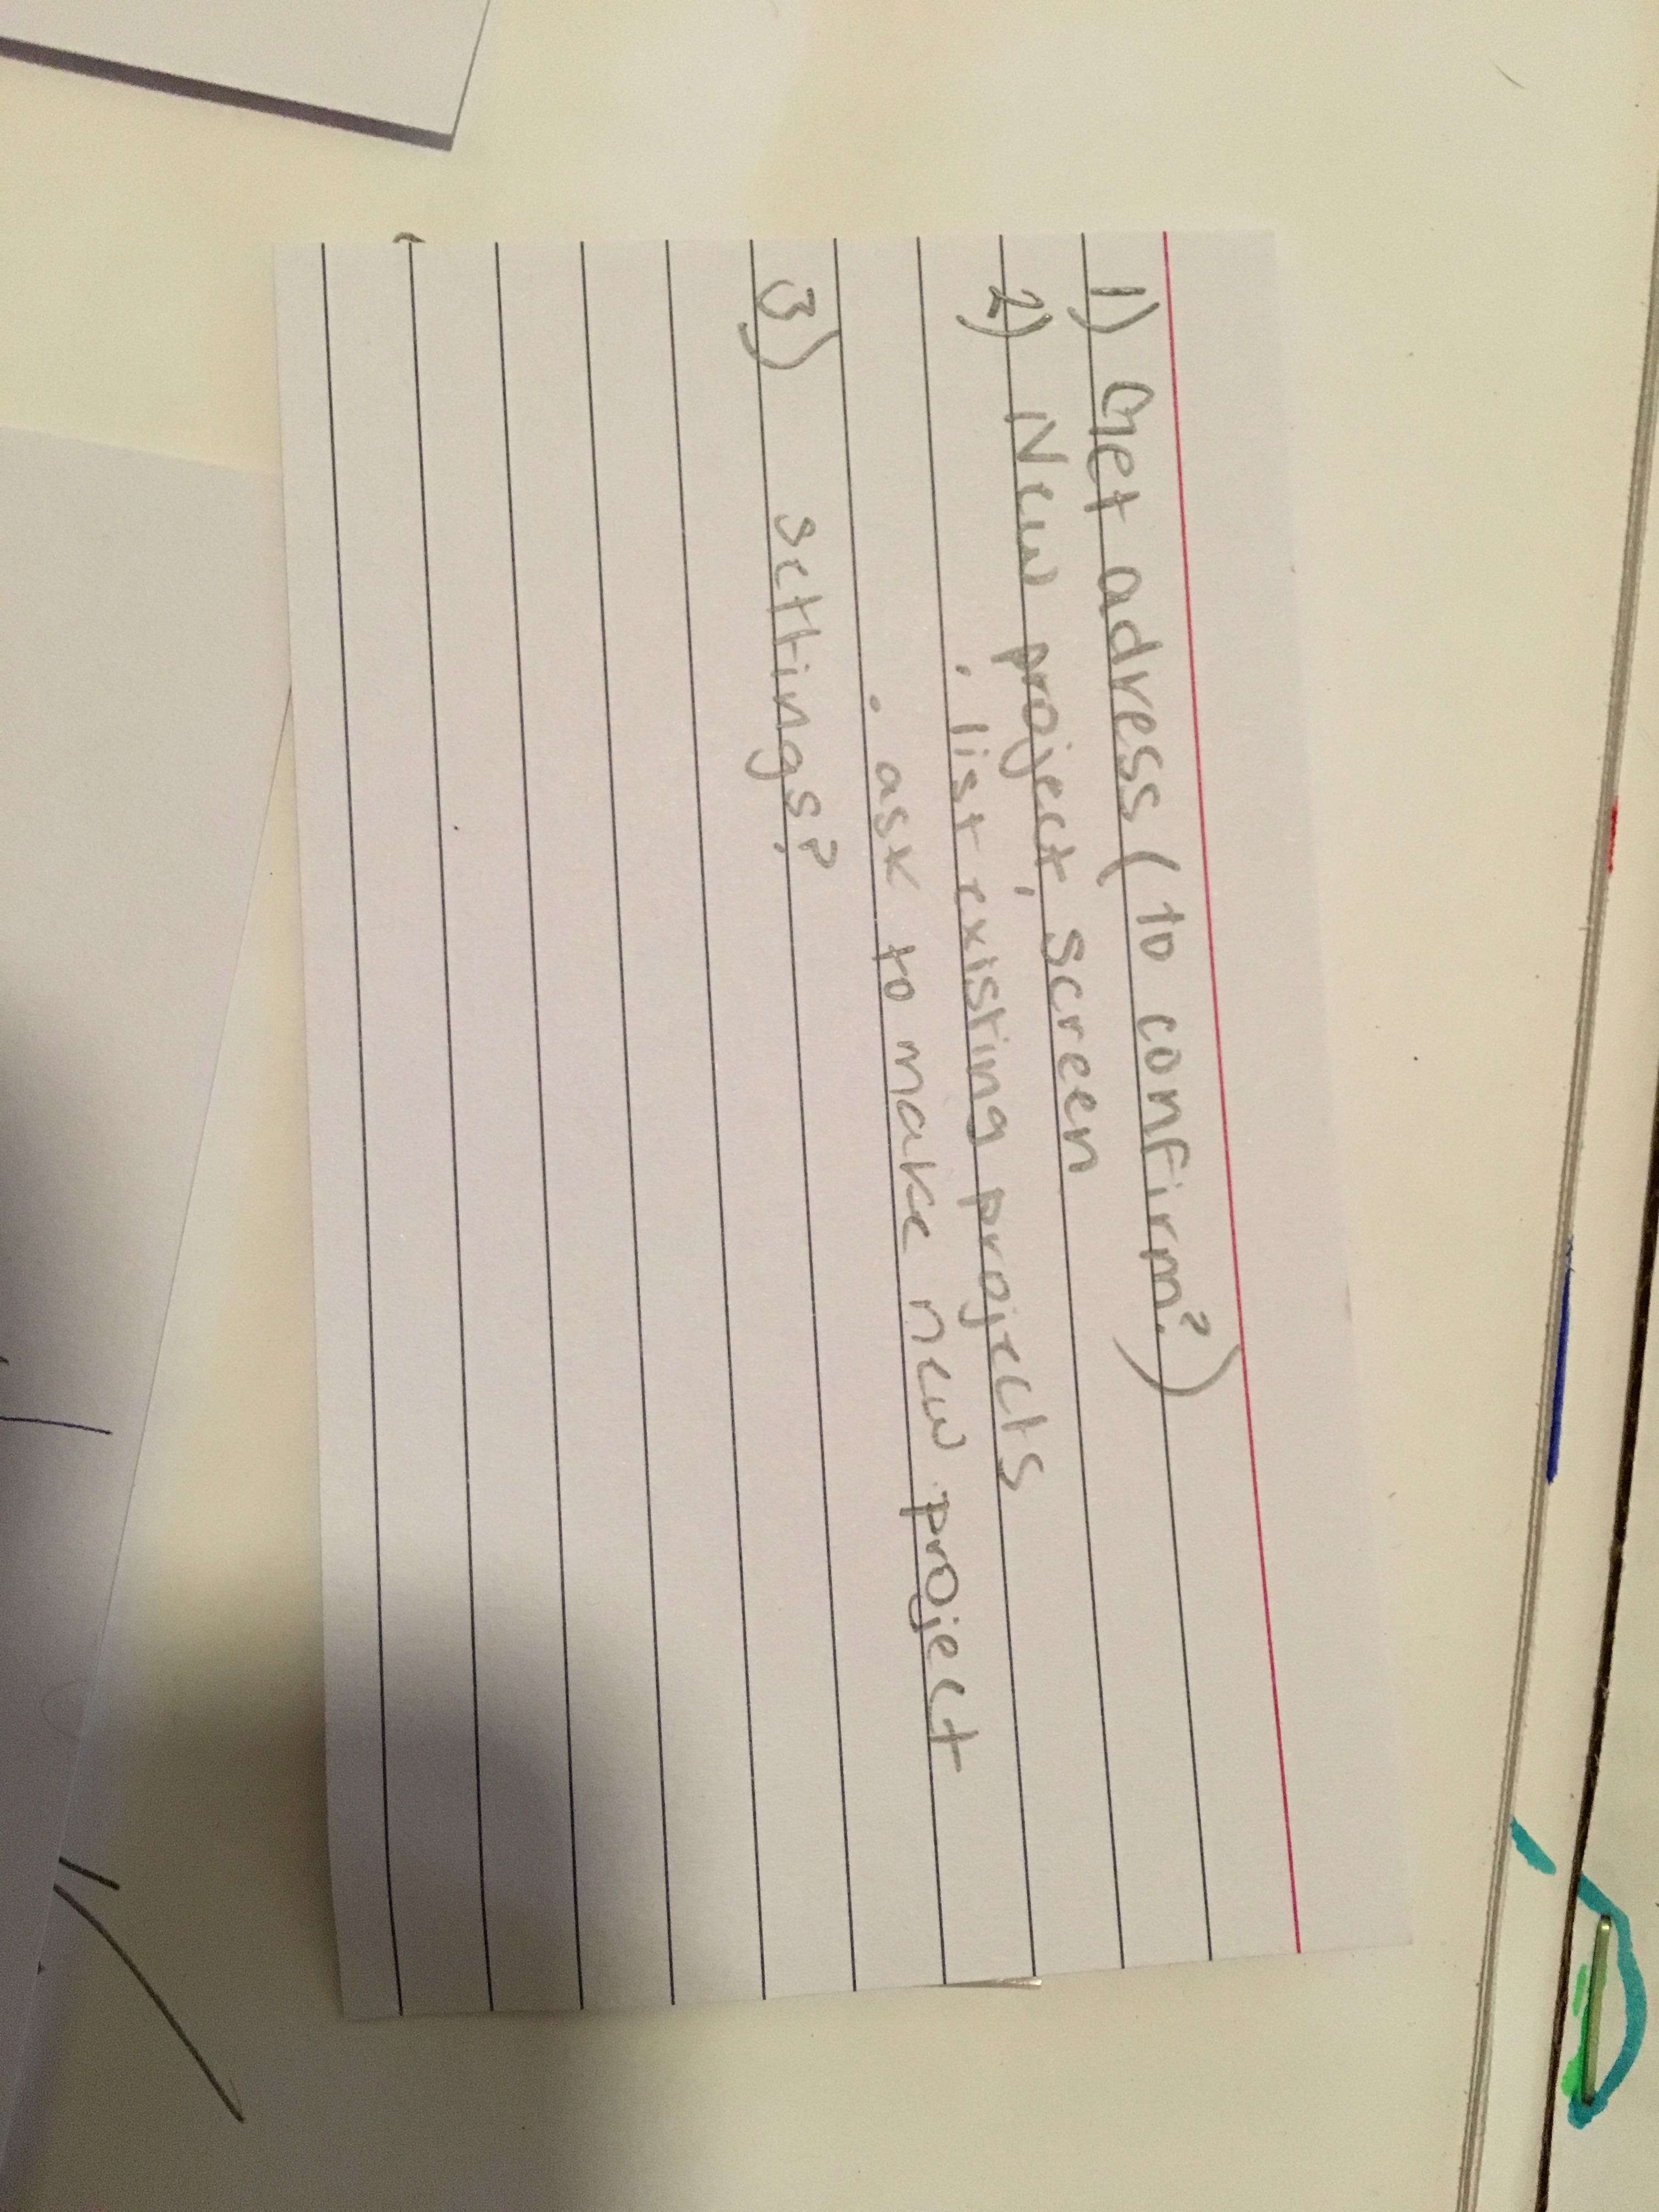 1) Get adress (to confirm?)
2) New project, screen
· list existing projects
· ask to make new project
3) settings?